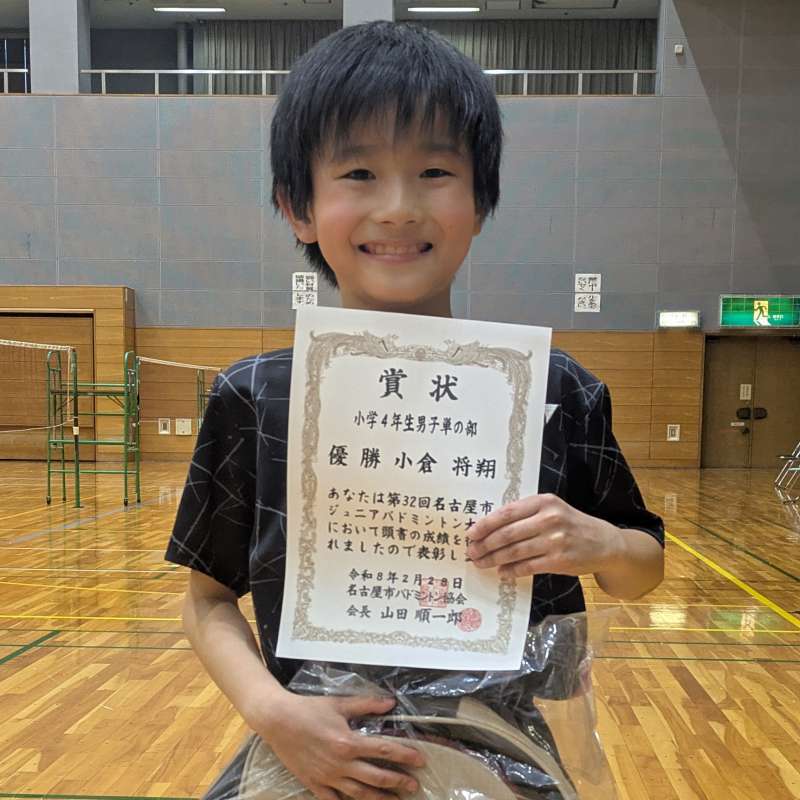 賞状
小学4年生男子単の部
優勝 小倉 将翔
あなたは第32回名古屋市
ジュニアバドミントン大
において頭書の成績を
れましたので表彰し
令和8年2月28日
名古屋市バドミントン協会
会長 山田 順一郎